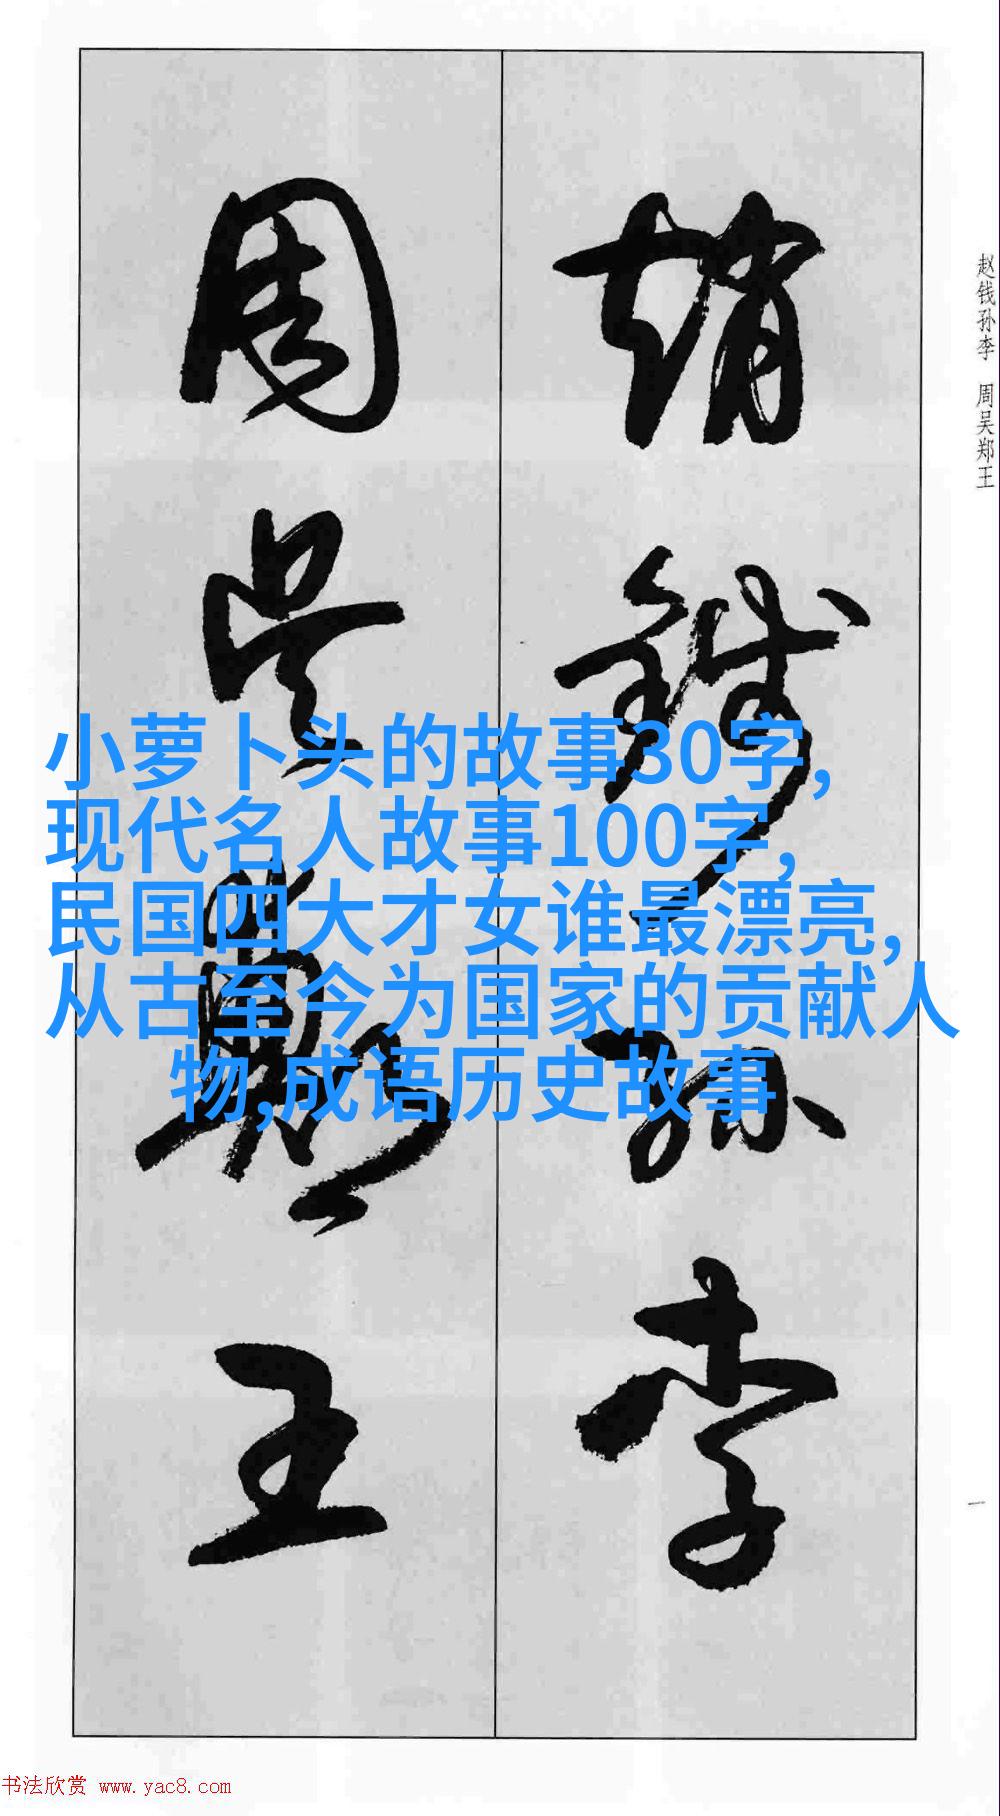 赵钱孙李 周吴郑王
趙錢孫李
周吴鄭王
小萝卜头的故事30字,
现代名人故事100字,
民国四大才女谁最漂亮,
从古至今为国家的贡献人
物,成语历史故事
一
书法欣赏 www.yac8.com